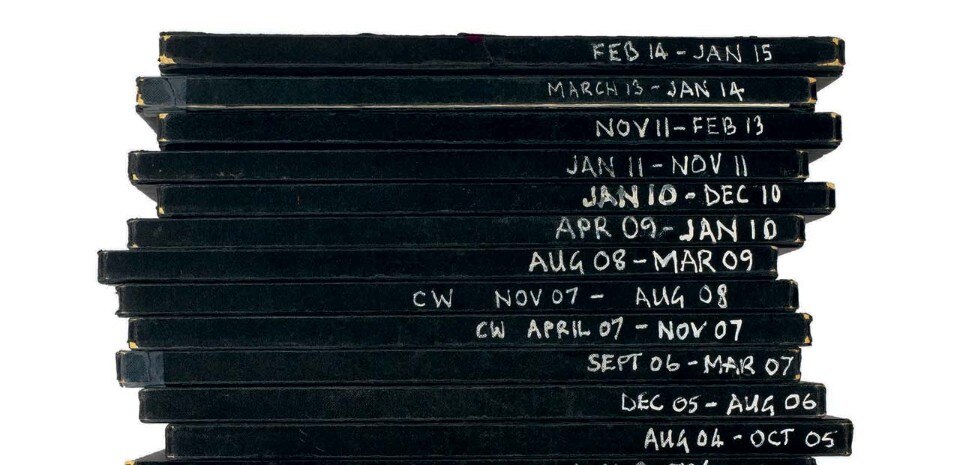 FEB 14 - JAN 15
MARCH 13 - JAN 14
NOV 11 - FEB 13
JAN 11 - NOV 11
JAN 10 - DEC 10
APR 09 - JAN 10
AUG 08 - MAR 09
CW NOV 07 - AUG 08
CW APRIL 07 - NOV 07
SEPT 06 - MAR 07
DEC 05 - AUG 06
AUG 04 - OCT 05